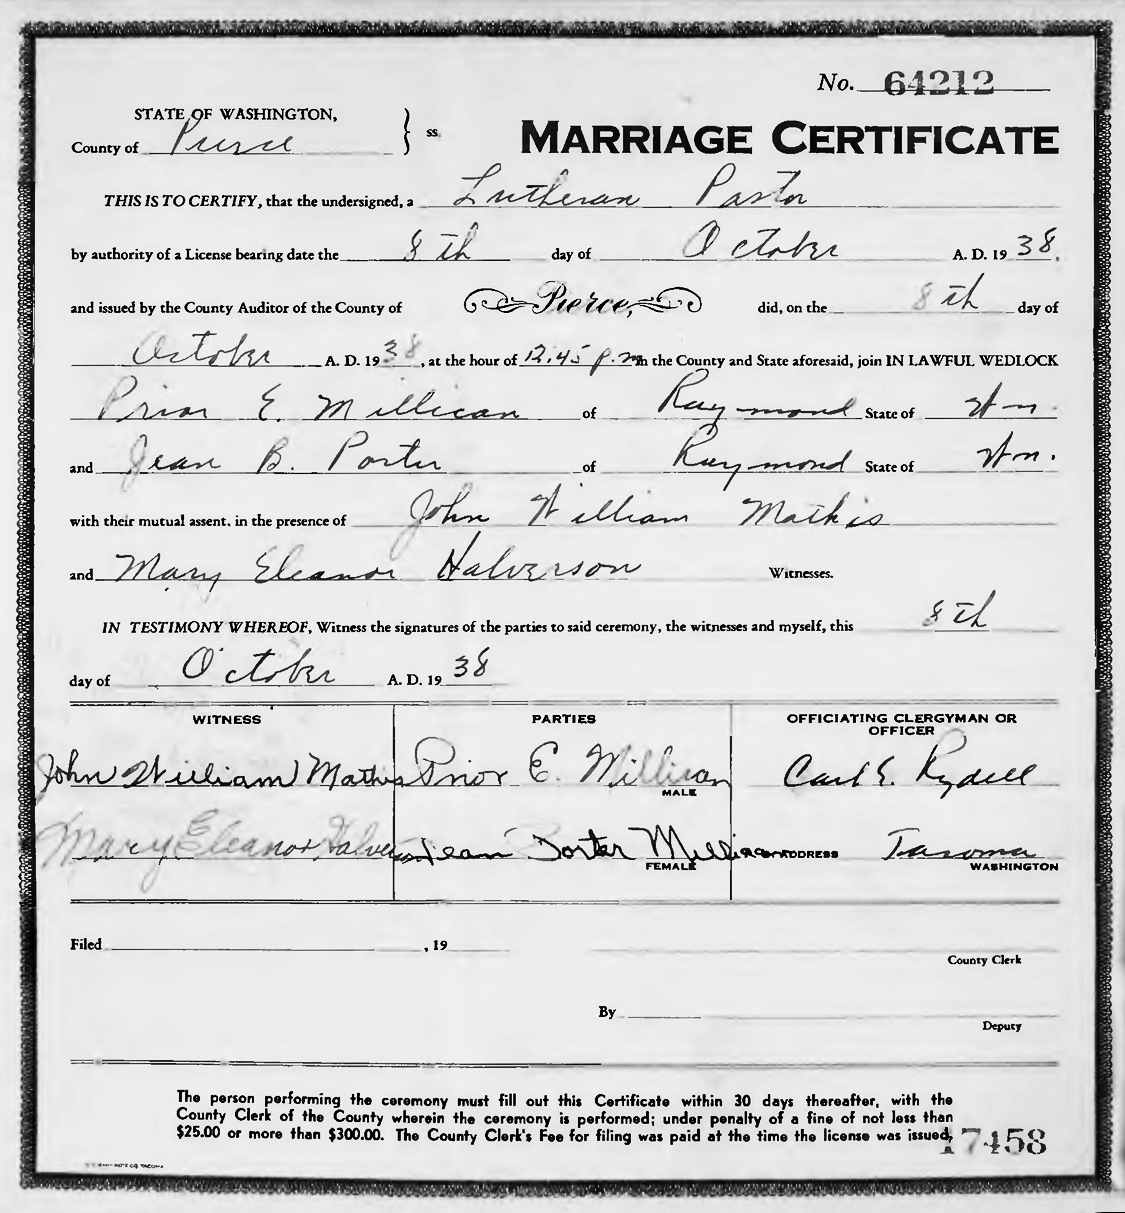 No. 64212
STATE OF WASHINGTON,
County of Pierce } ss.
MARRIAGE CERTIFICATE
THIS IS TO CERTIFY, that the undersigned, a Lutheran Pastor
by authority of a License bearing date the 8th day of October A. D. 1938.
and issued by the County Auditor of the County of Pierce, did, on the 8th day of
October A. D. 1938, at the hour of 12.45 p.m in the County and State aforesaid, join IN LAWFUL WEDLOCK
Prior E. Millican of Raymond State of Wn.
and Jean B. Porter of Raymond State of Wn.
with their mutual assent. in the presence of John William Mathis
and Mary Eleanor Halverson Witnesses.
IN TESTIMONY WHEREOF, Witness the signatures of the parties to said ceremony, the witnesses and myself, this 8th
day of October A. D. 1938
WITNESS PARTIES OFFICIATING CLERGYMAN OR OFFICER
John William Mathis Prior E. Millican Carl E. Rydell
MALE
Mary Eleanor Halverson Jean Porter Millican ADDRESS Tacoma
FEMALE WASHINGTON
Filed , 19
County Clerk
By
Deputy
The person performing the ceremony must fill out this Certificate within 30 days thereafter, with the
County Clerk of the County wherein the ceremony is performed; under penalty of a fine of not less than
$25.00 or more than $300.00. The County Clerk's Fee for filing was paid at the time the license was issued.
17458